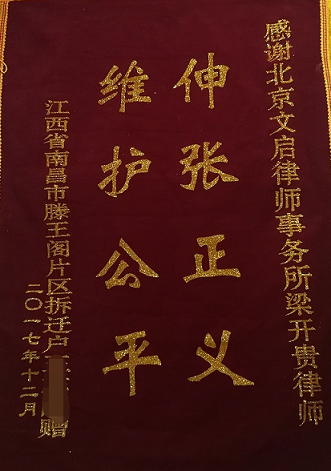 感谢北京文启律师事务所梁开贵律师
伸张正义
维护公平
江西省南昌市滕王阁片区拆迁户 赠
二〇一七年十二月